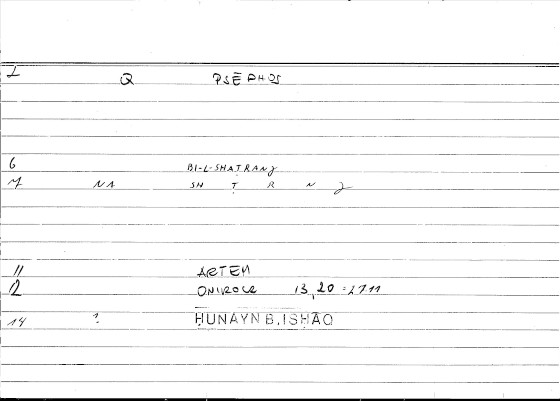 1 Q PSĒPHOS
6 BI-L-SHAṬRANJ
7 NA SH Ṭ R N J
11 ARTEM
12 ONIROCR 13,20 = 2711
14 ? ḤUNAYN B. ISḤĀQ